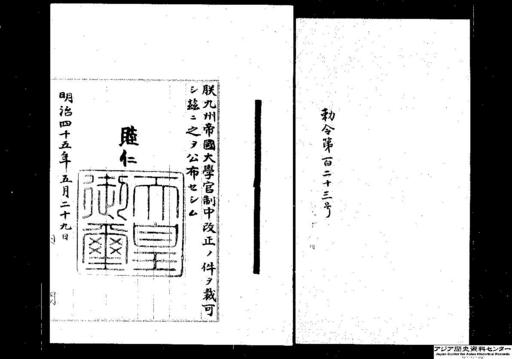 勅令第百二十三号
朕九州帝國大學官制中改正ノ件ヲ裁可
シ茲ニ之ヲ公布セシム
睦仁
天皇御璽
明治四十五年五月二十九日
アジア歴史資料センター
Japan Center for Asian Historical Records